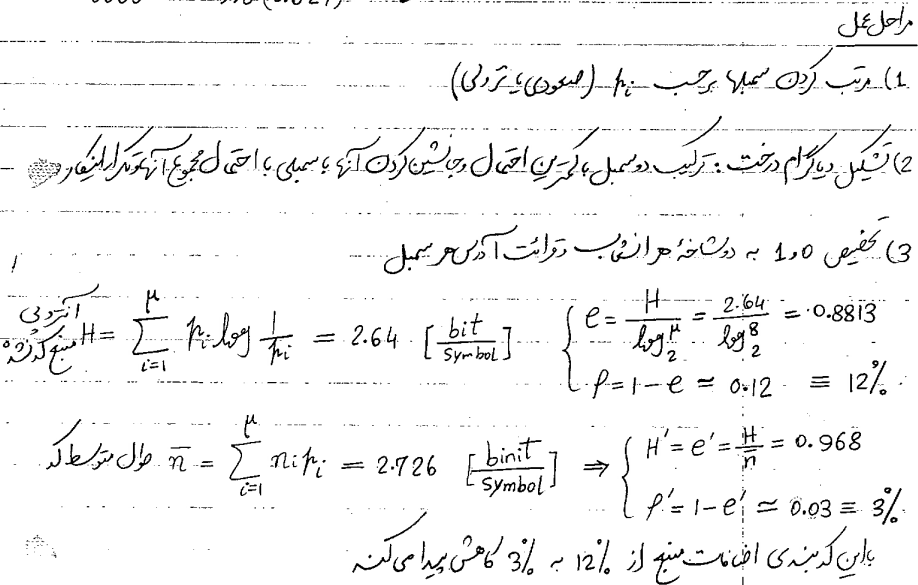 مراحل عمل
1) مرتب کردن سمبلها برحسب pᵢ (صعودی یا نزولی)
2) تشکیل دیاگرام درخت : ترکیب دو سمبل با کمترین احتمال و جانشین کردن آنها با سمبلی با احتمال مجموع آنها و تکرار اینکار
3) تخصیص 0 و 1 به دو شاخهٔ هر انشعاب و قرائت آدرس هر سمبل
آنتروپی منبع کد نشده H = ∑_{i=1}^{μ} pᵢ log 1/pᵢ = 2.64 [bit/symbol] { e = H/log₂^μ = 2.64/log₂^8 = 0.8813
ρ = 1 - e ≃ 0.12 ≡ 12%
طول متوسط کد n̄ = ∑_{i=1}^{μ} nᵢpᵢ = 2.726 [binit/symbol] ⇒ { H' = e' = H/n̄ = 0.968
ρ' = 1 - e' ≃ 0.03 ≡ 3%
با این کدبندی اضافات منبع از 12% به 3% کاهش پیدا می‌کند